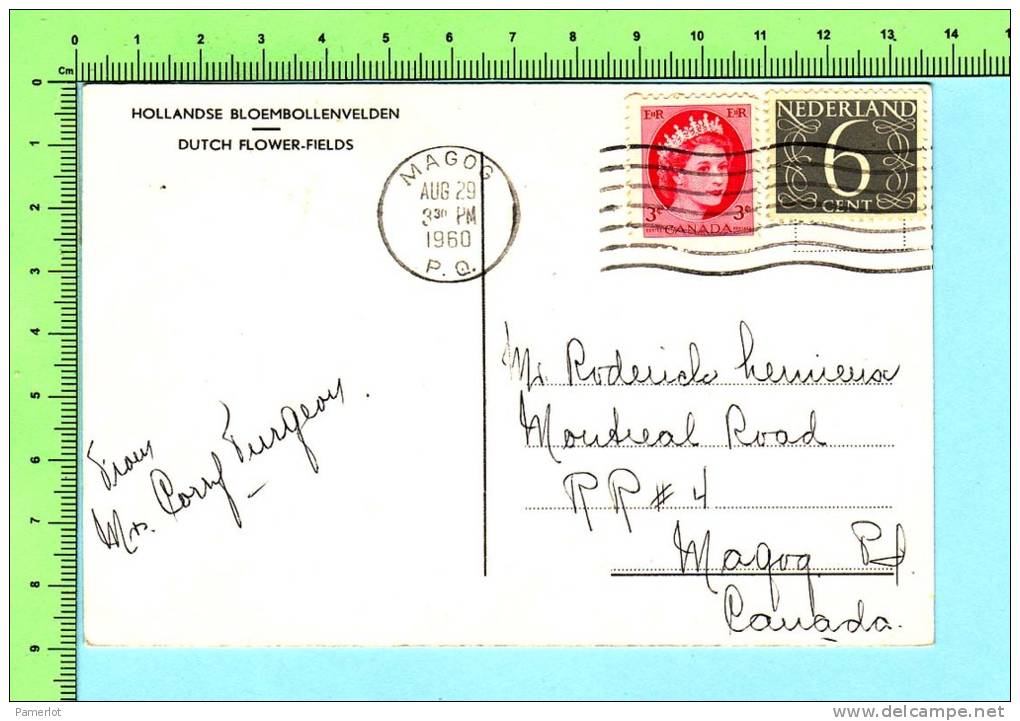 HOLLANDSE BLOEMBOLLENVELDEN
DUTCH FLOWER-FIELDS
MAGOG
AUG 29
3 30 PM
1960
P. Q.
EIIR EIIR
3c 3c
CANADA
NEDERLAND
6
CENT
Mr Roderick
Montreal Road
RR # 4
Magog
Canada.
From
Mrs. Turgeon.
Cm 0 1 2 3 4 5 6 7 8 9 10 11 12 13 14
0
1
2
3
4
5
6
7
8
9
Pamerlot
www.delcampe.net